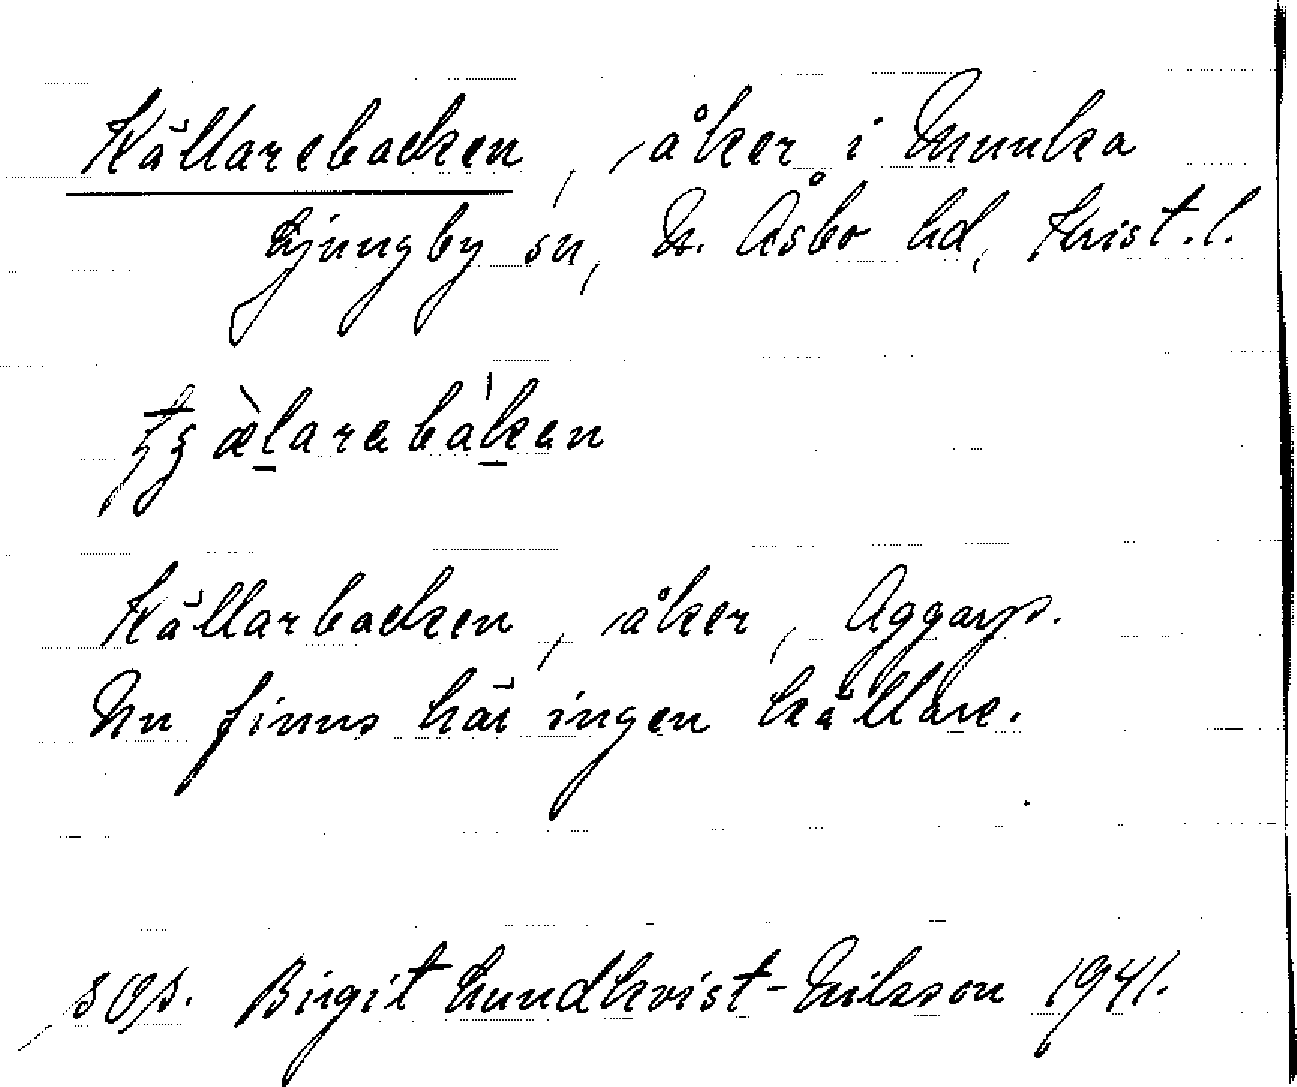 Källarebacken, åker i Munka
Ljungby sn, N. Åsbo hd, Krist. l.
Källarbacken, åker, Aggarp.
Nu finns här ingen källare.
Birgit Lundkvist-Nilsson 1941.